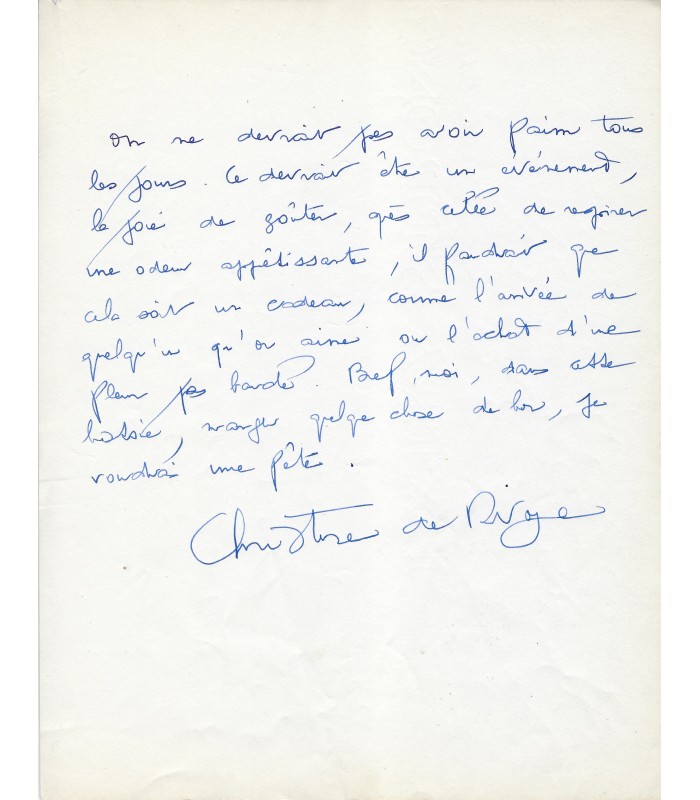 On ne devrait pas avoir faim tous
les jours. Ce devrait être un événement,
la joie de goûter, après celle de respirer
une odeur appétissante, il faudrait que
cela soit un cadeau, comme l'arrivée de
quelqu'un qu'on aime ou l'achat d'une
fleur pas banale. Bref, moi, dans cette
histoire, manger quelque chose de bon, je
voudrais une fête.
Christine de Rivoyre